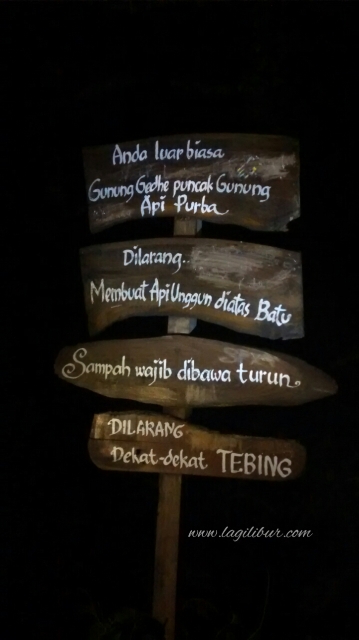 Anda luar biasa
Gunung Gedhe puncak Gunung
Api Purba
Dilarang..
Membuat Api Unggun diatas Batu
Sampah wajib dibawa turun.
DILARANG
Dekat-dekat TEBING
www.lagilibur.com